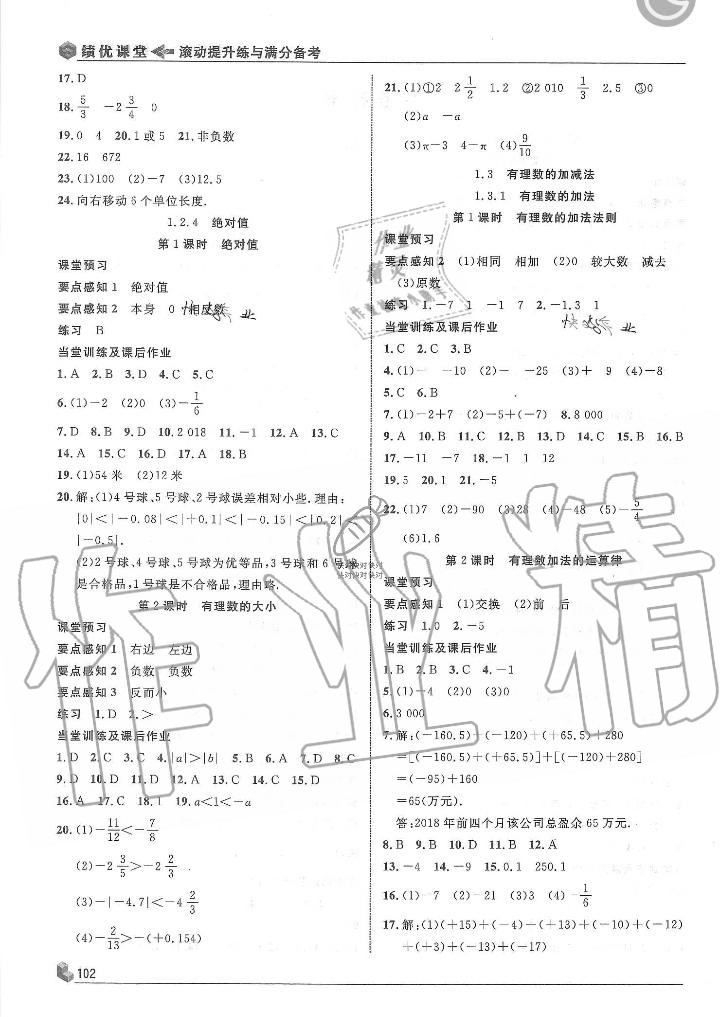 绩优课堂 滚动提升练与满分备考
17. D
18. 5/3 -2 3/4 0
19. 0 4 20. 1或5 21. 非负数
22. 16 672
23. (1)100 (2)-7 (3)12.5
24. 向右移动6个单位长度.
1.2.4 绝对值
第1课时 绝对值
课堂预习
要点感知1 绝对值
要点感知2 本身 0 相反数
练习 B
当堂训练及课后作业
1. A 2. B 3. D 4. C 5. C
6. (1)-2 (2)0 (3)-1/6
7. D 8. B 9. D 10. 2 018 11. -1 12. A 13. C
14. A 15. C 16. D 17. A 18. B
19. (1)54米 (2)12米
20. 解:(1)4号球、5号球、2号球误差相对小些.理由:
|0|<|-0.08|<|+0.1|<|-0.15|<|0.2|<
|-0.5|.
(2)2号球、4号球、5号球为优等品,3号球和6号球
是合格品,1号球是不合格品,理由略.
第2课时 有理数的大小
课堂预习
要点感知1 右边 左边
要点感知2 负数 负数
要点感知3 反而小
练习 1. D 2. >
当堂训练及课后作业
1. D 2. C 3. C 4. |a|>|b| 5. B 6. C 7. D 8. C
9. D 10. D 11. D 12. A 13. C 14. B 15. D
16. A 17. C 18. 1 19. a<1<-a
20. (1)-11/12<-7/8
(2)-2 3/5>-2 2/3
(3)-|-4.7|<-4 2/3
(4)-2/13>-(+0.154)
102
21. (1)①2 2 1/2 1.2 ②2 010 1/3 2.5 ③0
(2)a -a
(3)π-3 4-π (4)9/10
1.3 有理数的加减法
1.3.1 有理数的加法
第1课时 有理数的加法法则
课堂预习
要点感知2 (1)相同 相加 (2)0 较大数 减去
(3)原数
练习 1. -7 1 -1 7 2. -1.3 1
当堂训练及课后作业
1. C 2. C 3. B
4. (1)- -10 (2)- -25 (3)+ 9 (4)-8
5. C 6. B
7. (1)-2+7 (2)-5+(-7) 8. 8 000
9. A 10. B 11. C 12. D 13. B 14. A 15. B 16. B
17. -11 -7 18. -1 1 12
19. 5 20. 1 21. -5
22. (1)7 (2)-90 (3)28 (4)-48 (5)-5/4
(6)1.6
第2课时 有理数加法的运算律
课堂预习
要点感知1 (1)交换 (2)前 后
练习 1. 0 2. -5
当堂训练及课后作业
1. B 2. B 3. D 4. -1
5. (1) (2) (3)0
6. 3 000
7. 解:(-160.5)+(-120)+(+65.5)+280
=[(-160.5)+(+65.5)]+[(-120)+280]
=(-95)+160
=65(万元).
答:2018年前四个月该公司总盈余65万元.
8. B 9. B 10. B 11. B 12. A
13. -4 14. -9 15. 0.1 250.1
16. (1)-7 (2)-21 (3)3 (4)-1/6
17. 解:(1)(+15)+(-4)+(+13)+(-10)+(-12)
+(+3)+(-13)+(-17)
作业精